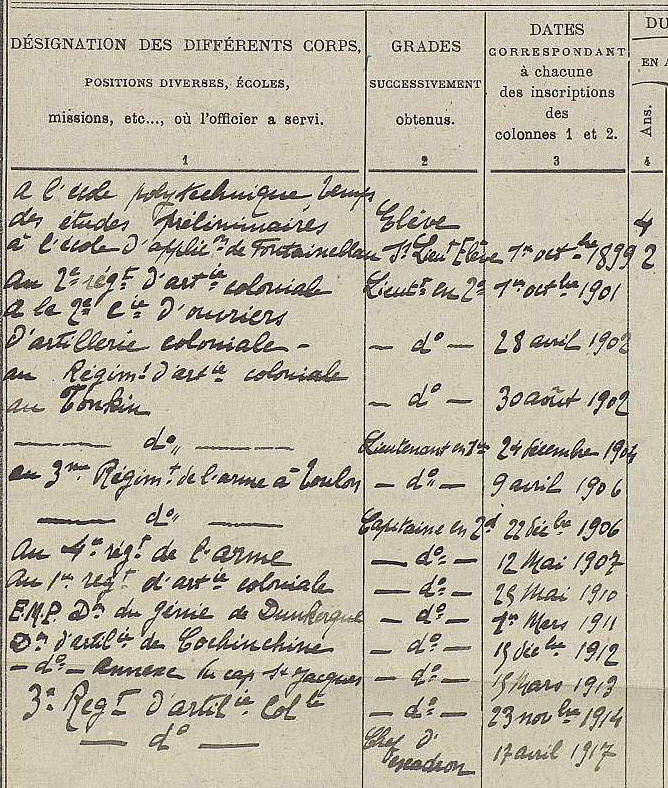 DÉSIGNATION DES DIFFÉRENTS CORPS,
POSITIONS DIVERSES, ÉCOLES,
missions, etc..., où l'officier a servi.
1
GRADES
SUCCESSIVEMENT
obtenus.
2
DATES
CORRESPONDANT
à chacune
des inscriptions
des
colonnes 1 et 2.
3
DU
EN A
Ans.
4
A l'école polytechnique temps
des études préliminaires Elève 4
à l'école d'applic.on de Fontainebleau S/Lieut Elève 1er octbre 1899 2
au 2e régt d'artie coloniale Lieutt en 2d 1er octbre 1901
A la 2e Cie d'ouvriers
d'artillerie coloniale - — do — 28 avril 1902
au Régimt d'artie coloniale
au Tonkin — do — 30 août 1902
— do — Lieutenant en 1er 24 décembre 1904
au 3me Régimt de l'arme à Toulon — do — 9 avril 1906
— do — Capitaine en 2d 22 décbre 1906
Au 4e régt de l'arme — do — 12 Mai 1907
Au 1er régt d'artie coloniale — do — Mai 1910
E.M.P. Don du génie de Dunkerque — do — 1er Mars 1911
Don d'artilie de Cochinchine — do — décbre 1912
- do - annexe du cap St Jacques — do — Mars 1913
3e Regt d'artilie Colle — do — 23 novbre 1914
— do — Chef d'escadron 17 avril 1917